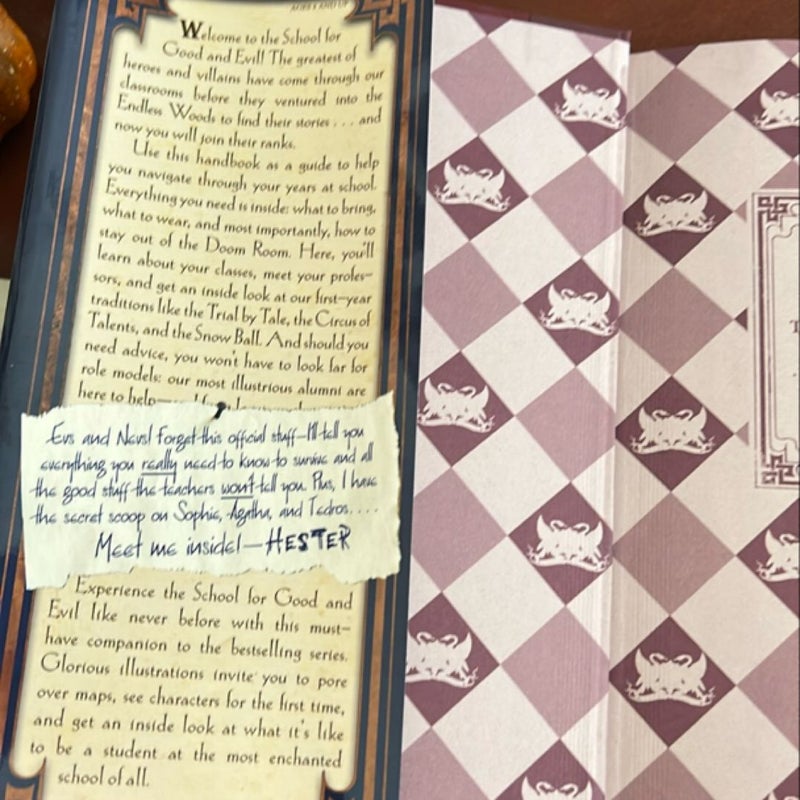 AGES 8 AND UP
Welcome to the School for
Good and Evil! The greatest of
heroes and villains have come through our
classrooms before they ventured into the
Endless Woods to find their stories . . . and
now you will join their ranks.
Use this handbook as a guide to help
you navigate through your years at school.
Everything you need is inside: what to bring,
what to wear, and most importantly, how to
stay out of the Doom Room. Here, you'll
learn about your classes, meet your profes-
sors, and get an inside look at our first-year
traditions like the Trial by Tale, the Circus of
Talents, and the Snow Ball. And should you
need advice, you won't have to look far for
role models: our most illustrious alumni are
here to help—
Evs and Nevs! Forget this official stuff—I'll tell you
everything you really need to know to survive and all
the good stuff the teachers won't tell you. Plus, I have
the secret scoop on Sophie, Agatha, and Tedros. . . .
Meet me inside!—HESTER
Experience the School for Good and
Evil like never before with this must-
have companion to the bestselling series.
Glorious illustrations invite you to pore
over maps, see characters for the first time,
and get an inside look at what it's like
to be a student at the most enchanted
school of all.